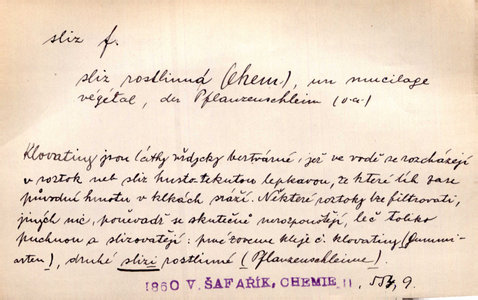 sliz f.
sliz rostlinná (chem), un mucilage
végétal, der Pflanzenschleim (v.a.)
Klovatiny jsou látky vždycky beztvárné, jež ve vodě se rozcházejí
v roztok neb sliz husto-tekutou lepkavou, ze které líh zase
původní hmotu v klkách sráží. Některé roztoky lze filtrovati,
jiných nic, poněvadž se skutečně nerozpouštějí, leč toliko
puchnou a slizovatějí: prvé zoveme kleje č. klovatiny (Gummi-
arten), druhé slizi rostlinné (Pflanzenschleime).
1860 V. ŠAFAŘÍK, CHEMIE II, 9.